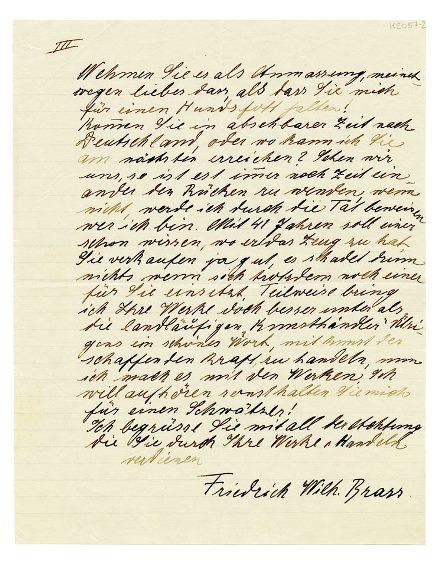 K2057-2
III
Nehmen Sie es als Anmassung, meinet
wegen lieber das, als dass Sie mich
für einen Hundsfott halten!
Können Sie in absehbarer Zeit nach
Deutschland, oder wo kann ich Sie
am nächsten erreichen? Sehen wir
uns, so ist es immer noch Zeit ein
ander den Rücken zu wenden, wenn
nicht, werde ich durch die Tat beweisen
wer ich bin. Mit 41 Jahren soll einer
schon wissen, wo er das Zeug zu hat.
Sie verkaufen ja gut, es schadet drum
nichts, wenn sich trotzdem noch einer
für Sie einsetzt. Teilweise bring
ich Ihre Werke doch besser unter als
die landläufigen "Kunsthändler" Übri
gens ein schönes Wort, mit Kunst der
schaffenden Kraft zu handeln, nun
ich mach es mit den Werken. Ich
will aufhören sonst halten Sie mich
für einen Schwätzer!
Ich begrüsse Sie mit all der Achtung
die Sie durch Ihre Werke & Handeln
verdienen
Friedrich Wilh. Brass.